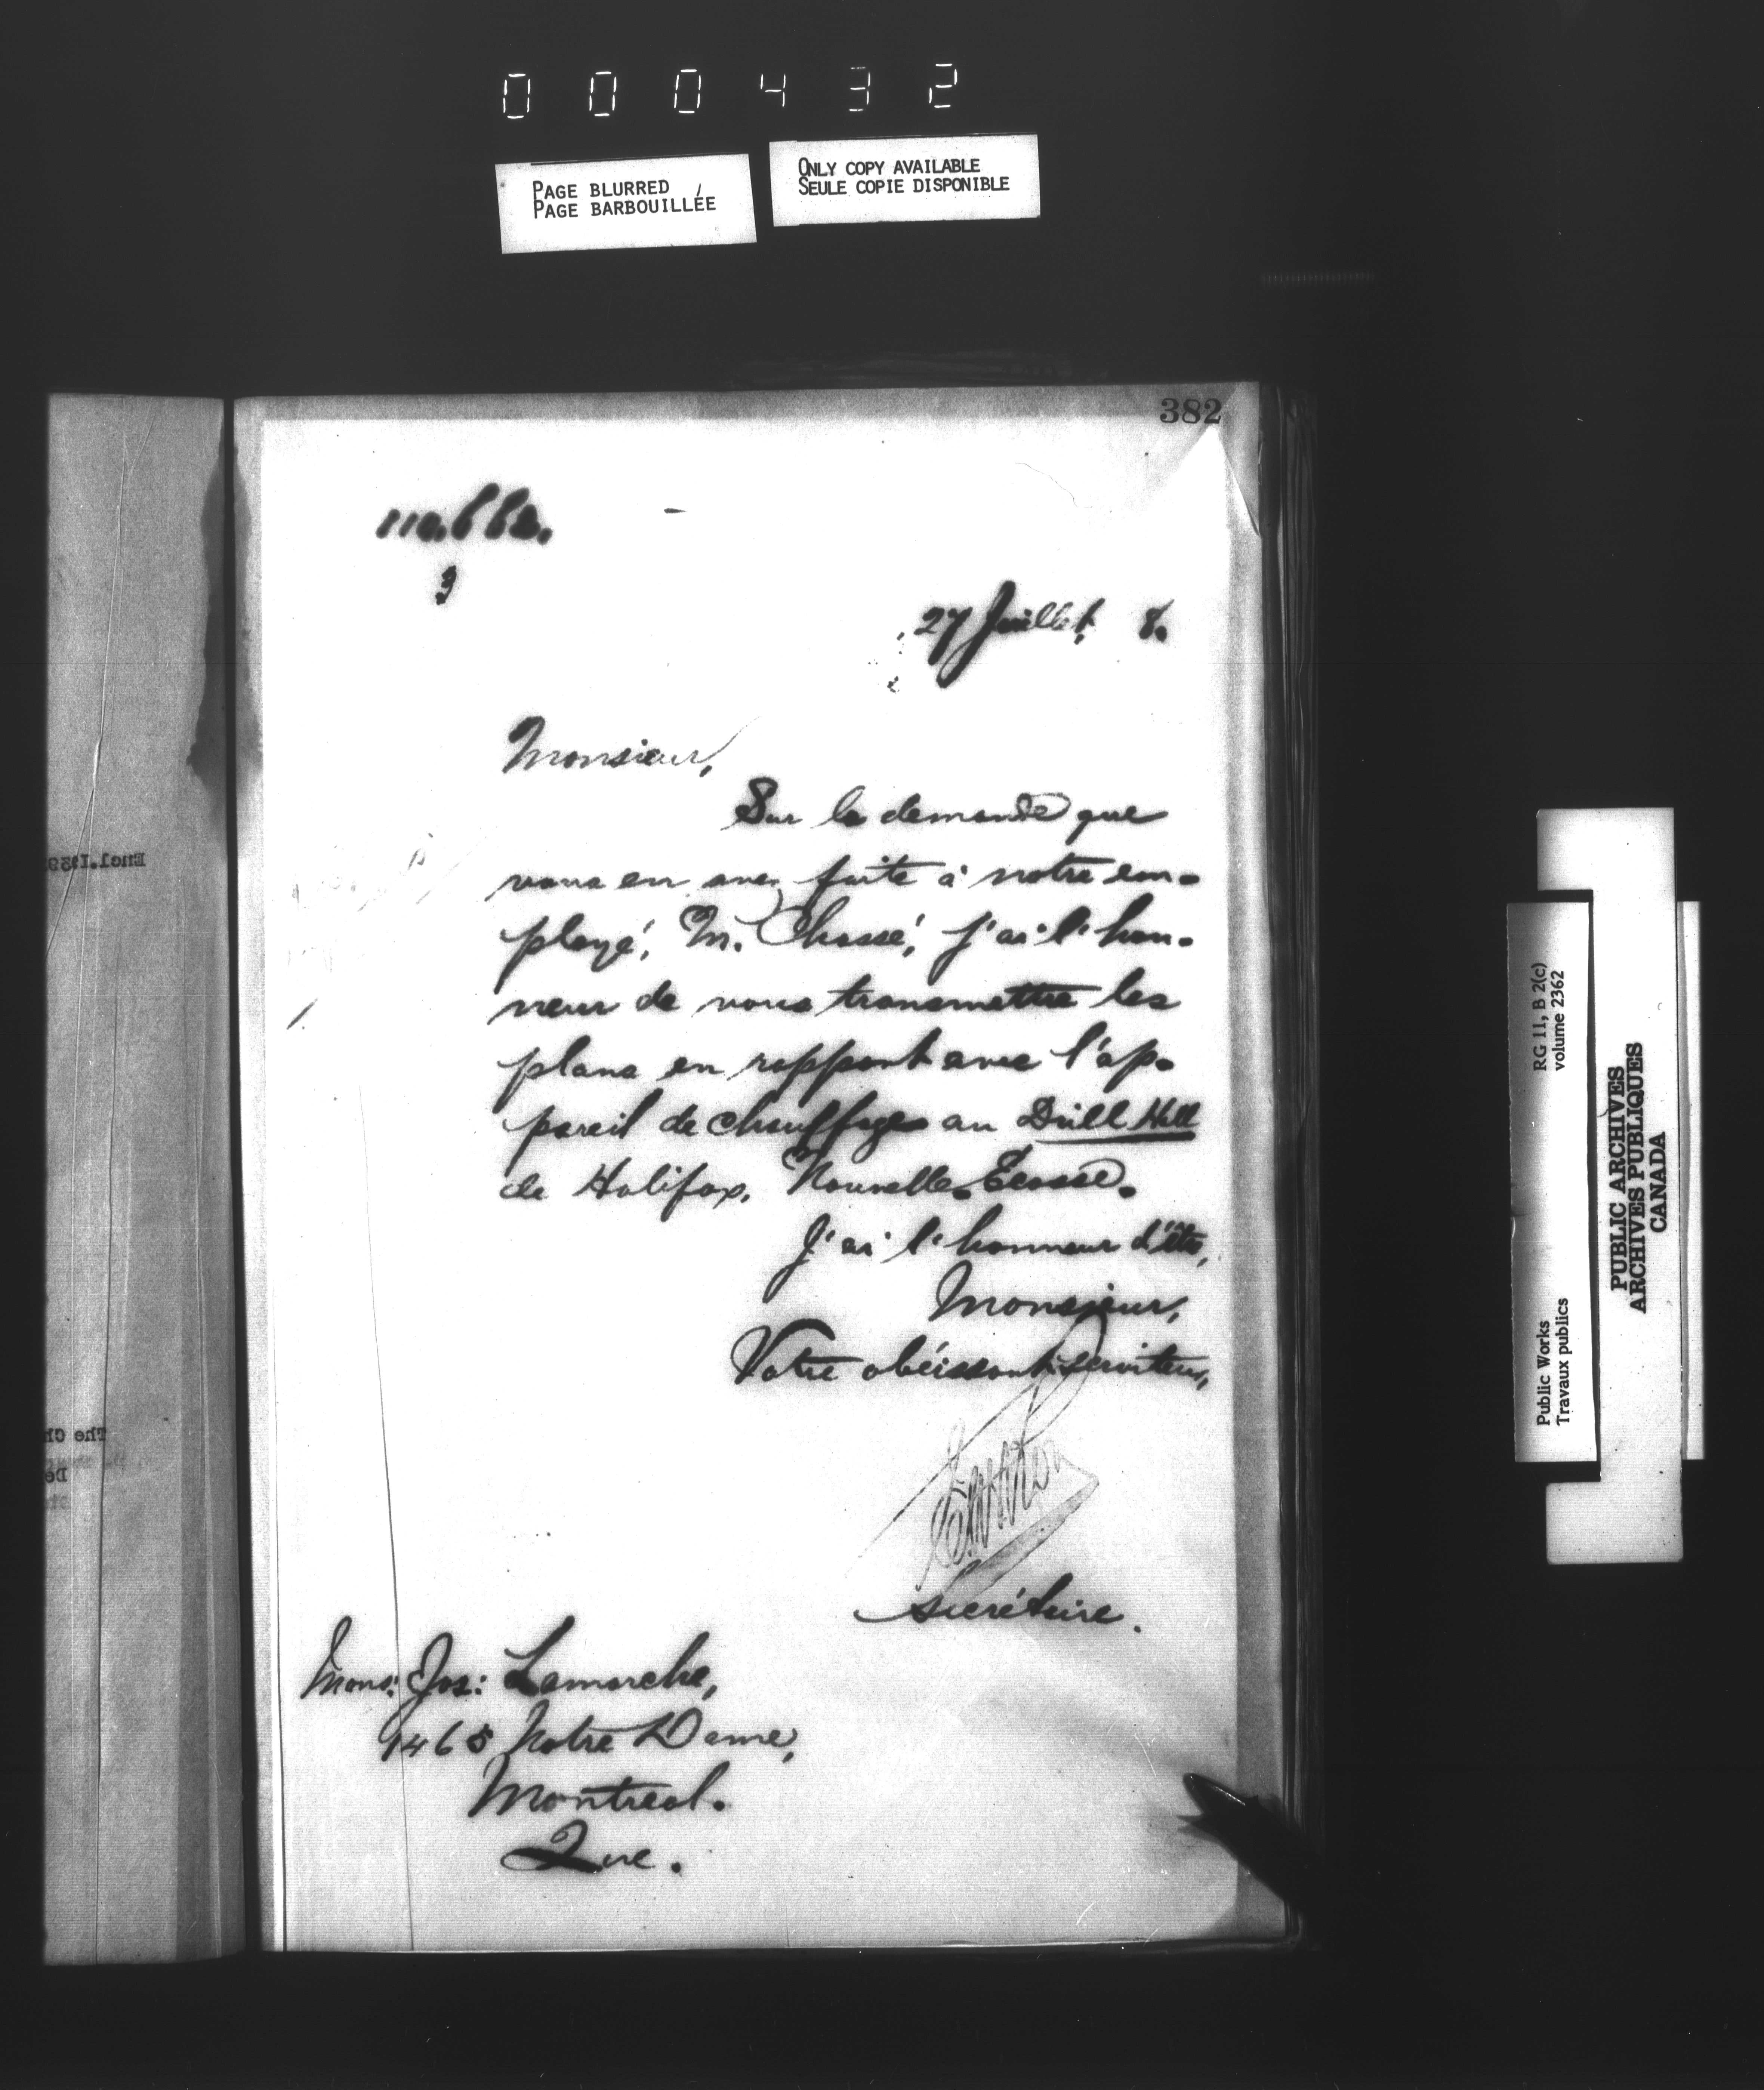 000432
PAGE BLURRED
PAGE BARBOUILLÉE
ONLY COPY AVAILABLE
SEULE COPIE DISPONIBLE
382
3
27 Juillet, 8.
Monsieur,
Sur la demande que
vous en avez faite à notre em-
ployé, M. Chassé, j'ai l'hon-
neur de vous transmettre les
plans en rapport avec l'ap-
pareil de chauffage au Drill Hall
de Halifax, Nouvelle-Ecosse.
J'ai l'honneur d'être,
Monsieur,
Votre obéissant serviteur,
Secrétaire.
Mons: Jos: Lamarche,
1465 Notre Dame,
Montreal.
Que.
Encl.1.
The Ch
RG 11, B 2(c)
volume 2362
Public Works
Travaux publics
PUBLIC ARCHIVES
ARCHIVES PUBLIQUES
CANADA